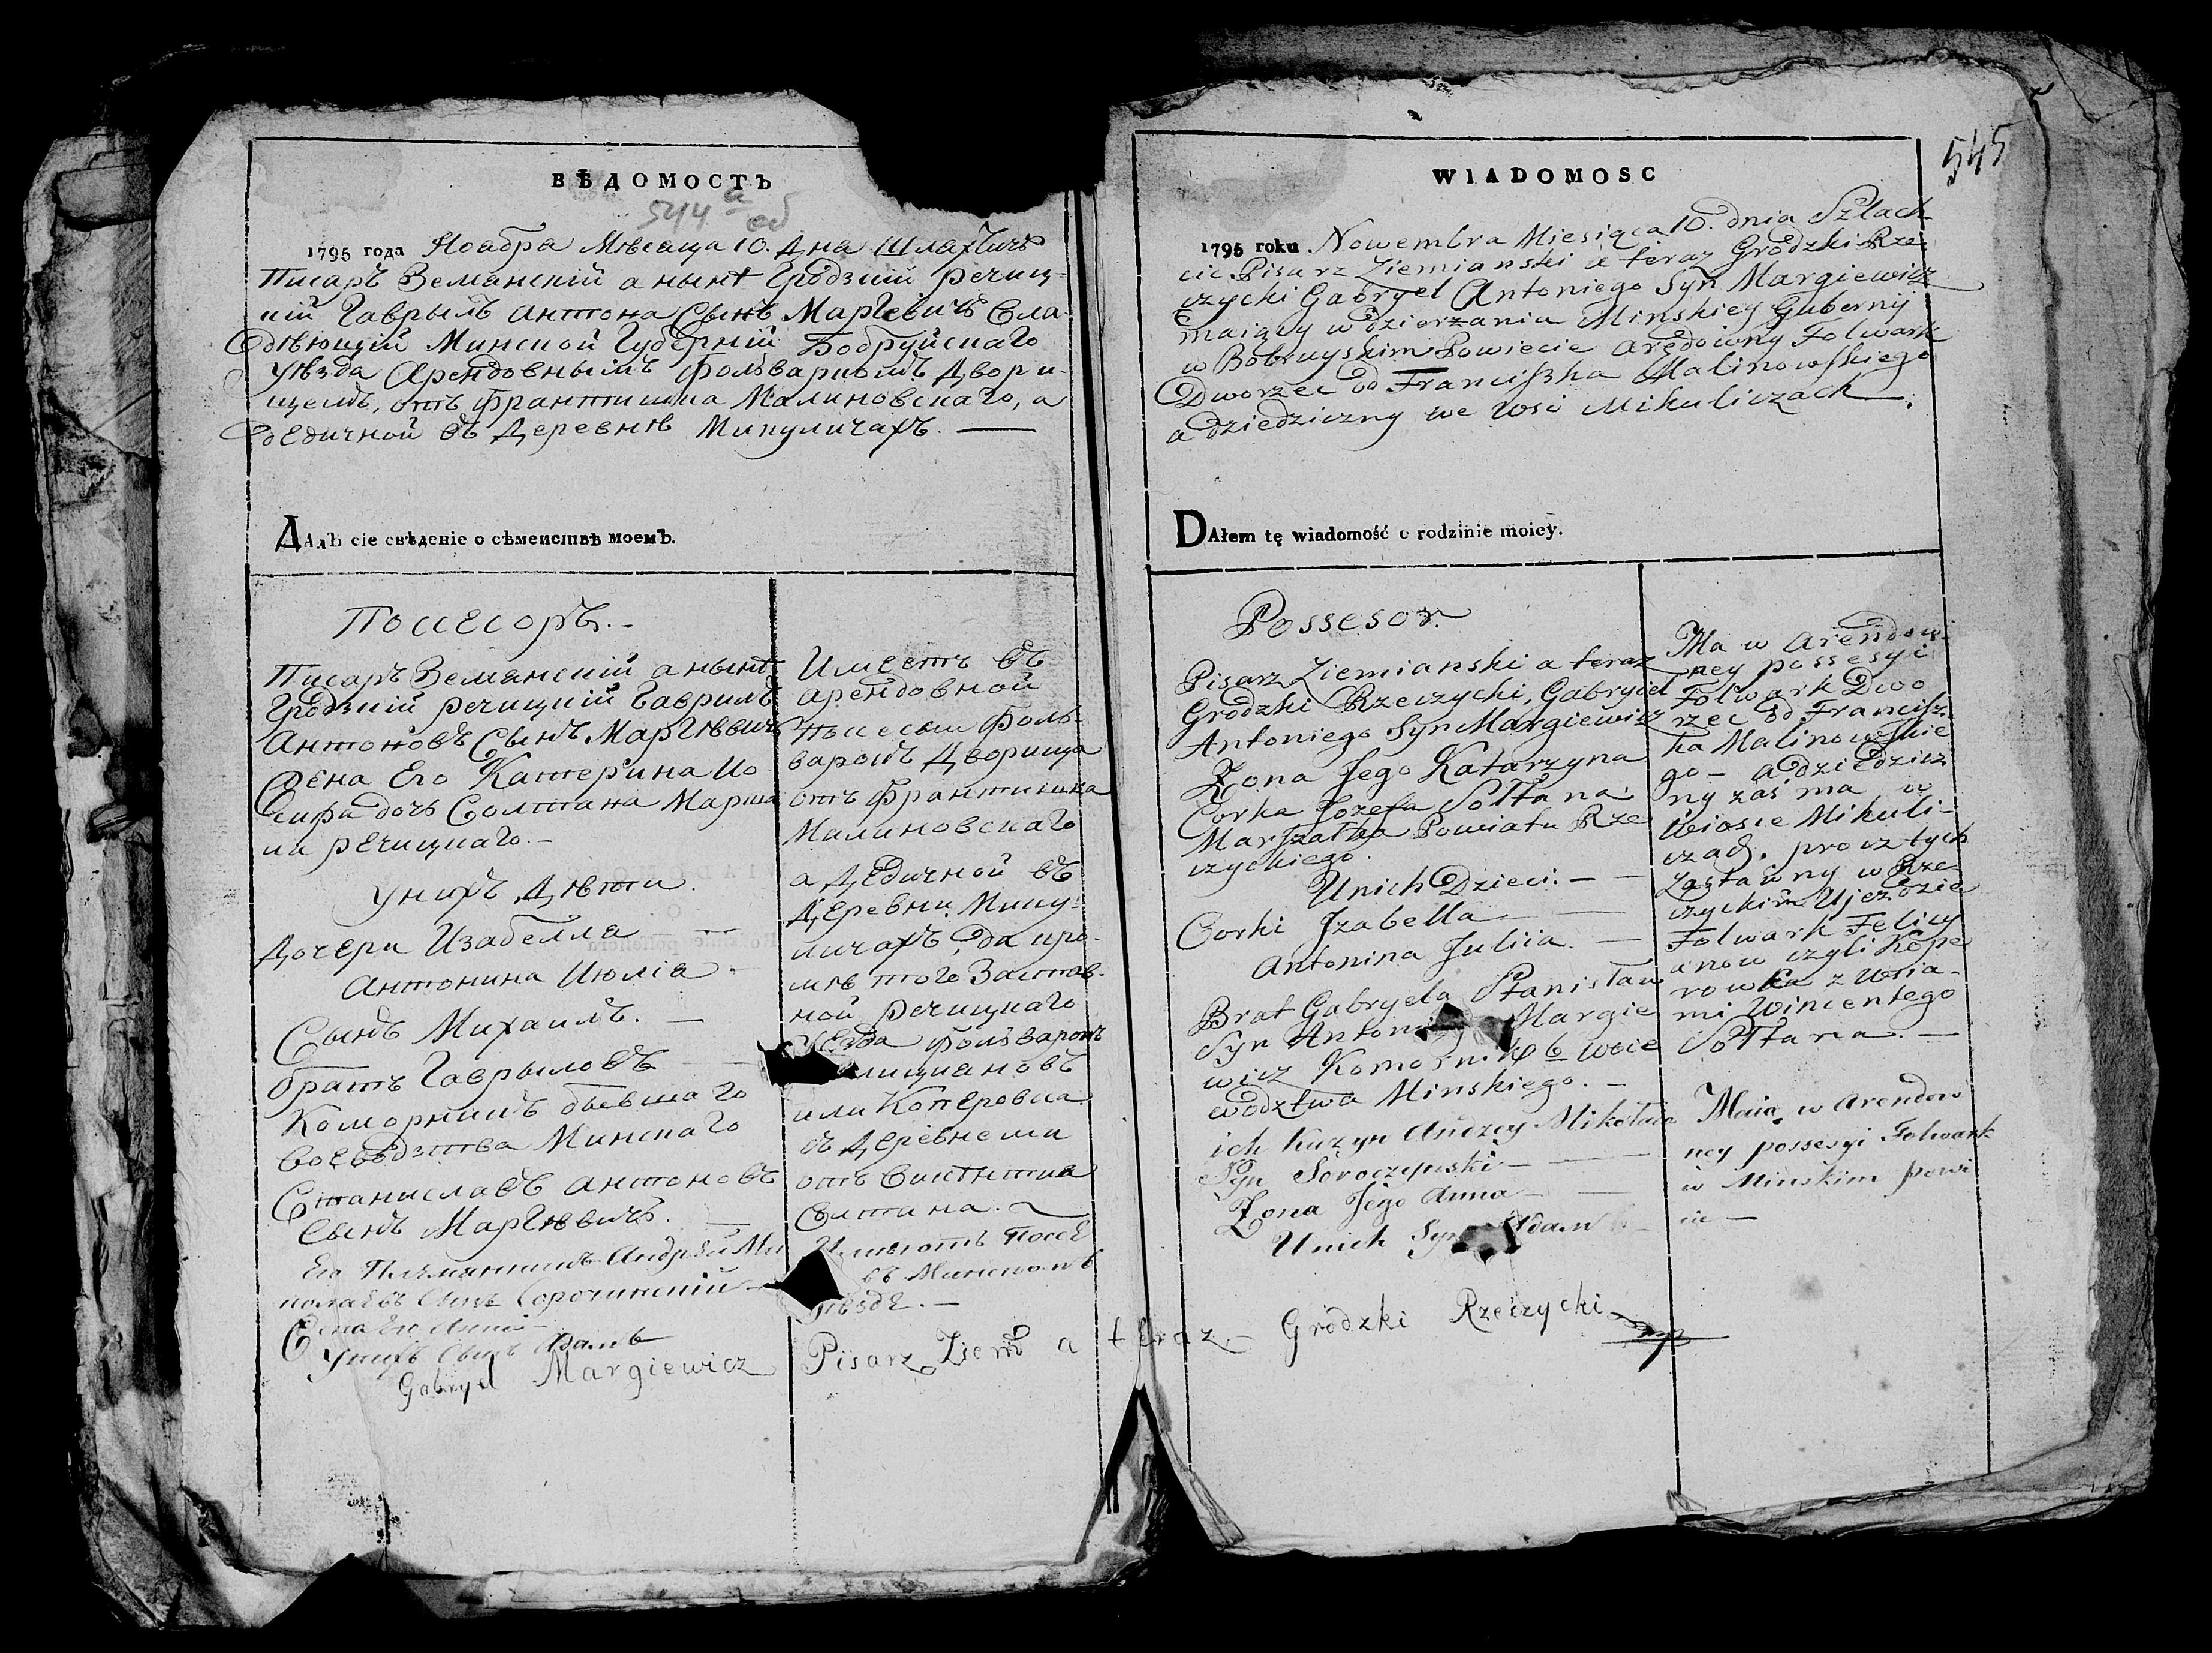 ВѢДОМОСТЬ
544 а об
1795 года Ноября Мѣсяца 10. Дня Шляхтичъ
Писаръ Земянскій а нынѣ Гродзкій Речиц-
кій Гаврылъ Антона Сынъ Маргевичъ Вла-
дѣющій Минской Губерній Бобруйскаго
Уѣзда Арендовнымъ фольваркомъ Двори-
щемъ, отъ Франтишка Малиновскаго, а
дедичной въ Деревнѣ Микуличахъ.
ДАлъ сіе свѣденіе о сѣмействѣ моемЪ.
Поссесоръ.
Писаръ Земянскій а нынѣ
Гродзкій Речицкій Гаврилъ
Антоновъ Сынъ Маргѣвичъ
Жена Его Катерина Ио
сифа дочь Солтана Марша
ка Речицкаго.
У нихъ Дѣти.
Дочери Изабелла
Антонина Июлія
Сынъ Михаилъ.
братъ Гаврыловъ
Коморникъ бывшаго
Воеводзтва Минскаго
Станиславъ Антоновъ
Сынъ Маргѣвичъ.
Его Племянникъ Андрей Ми
колаевъ Сынъ Сорочинскій
Жена Его Анна
У нихъ Сынъ Адамъ
Имеетъ въ
арендовной
Поссесыи Фоль-
варокъ Дворища
отъ Франтишка
Малиновскаго
а Дедичной въ
Деревни Мику-
личахъ, да кро-
мѣ того Застав-
ной Речицкаго
Уезда фольварокъ
лициановъ
или Коперовка
съ Деревнями
отъ Винцентия
Солтана.
Имѣютъ Поссе
въ Минскомъ
уѣзде.
Gabryel Margiewicz Pisarz Ziem a teraz Grodzki Rzeczycki
545
WIADOMOSC
1795 roku Nowembra Miesiąca 10. dnia Szlach
cic Pisarz Ziemianski a teraz Grodzki Rze-
czycki Gabryel Antoniego Syn Margiewicz
maiący w dzierzaniu Minskiey Guberny
w Bobruyskim Powiecie arędowny Folwark
Dworzec od Franciszka Malinowskiego
a dziedziczny we wsi Mikuliczach.
DAłem tę wiadomość o rodzinie moicy.
Possesor.
Pisarz Ziemianski a teraz
Grodzki Rzeczycki, Gabryiel
Antoniego Syn Margiewicz
Zona Jego Katarzyna
Corka Jozefa Sołtana
Marszałka Powiatu Rze
czyckiego.
U nich Dzieci.
Corki Jzabella
Antonina Juliia.
Brat Gabryela Stanisław
Syn Antoni Margie
wicz Komornik b woie
wodztwa Minskiego.
ich kuzyn Andrzey Mikołaia
Syn Soroczynski
Zona Jego Anna
U nich Syn Adam
Ma w Arendow-
ney possesyi
Folwark Dwo
rzec od Francisz-
ka Malinowskie
go - a dziedzicz
ny zaś ma w
Wiosce Mikuli-
czach. procz tych
Zastawny w Rze
czyckim Ujezdzie
Folwark Felicy
anow czyli Kope
rowka z wsia-
mi Wincentego
Sołtana.
Maią w arendow
ney possesyi Folwark
w Minskim powi
cie